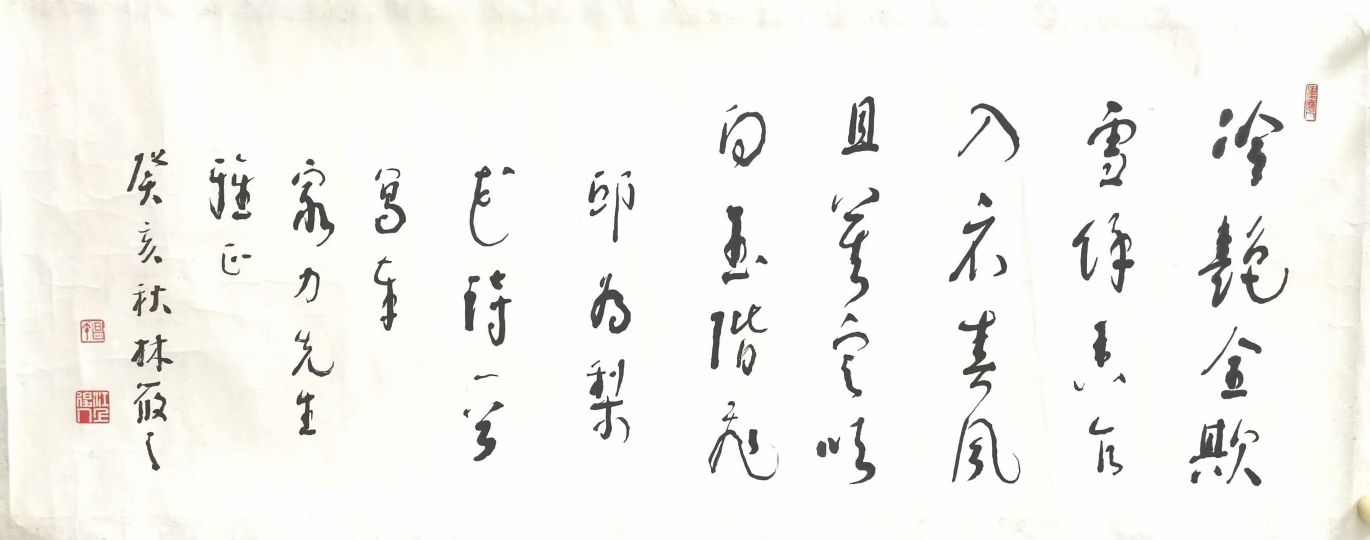 冷艷全欺
雪餘香乍
入衣春風
且莫定吹
向玉階飛
邱為梨
花詩一首
寫奉
家力先生
雅正
癸亥秋林散之